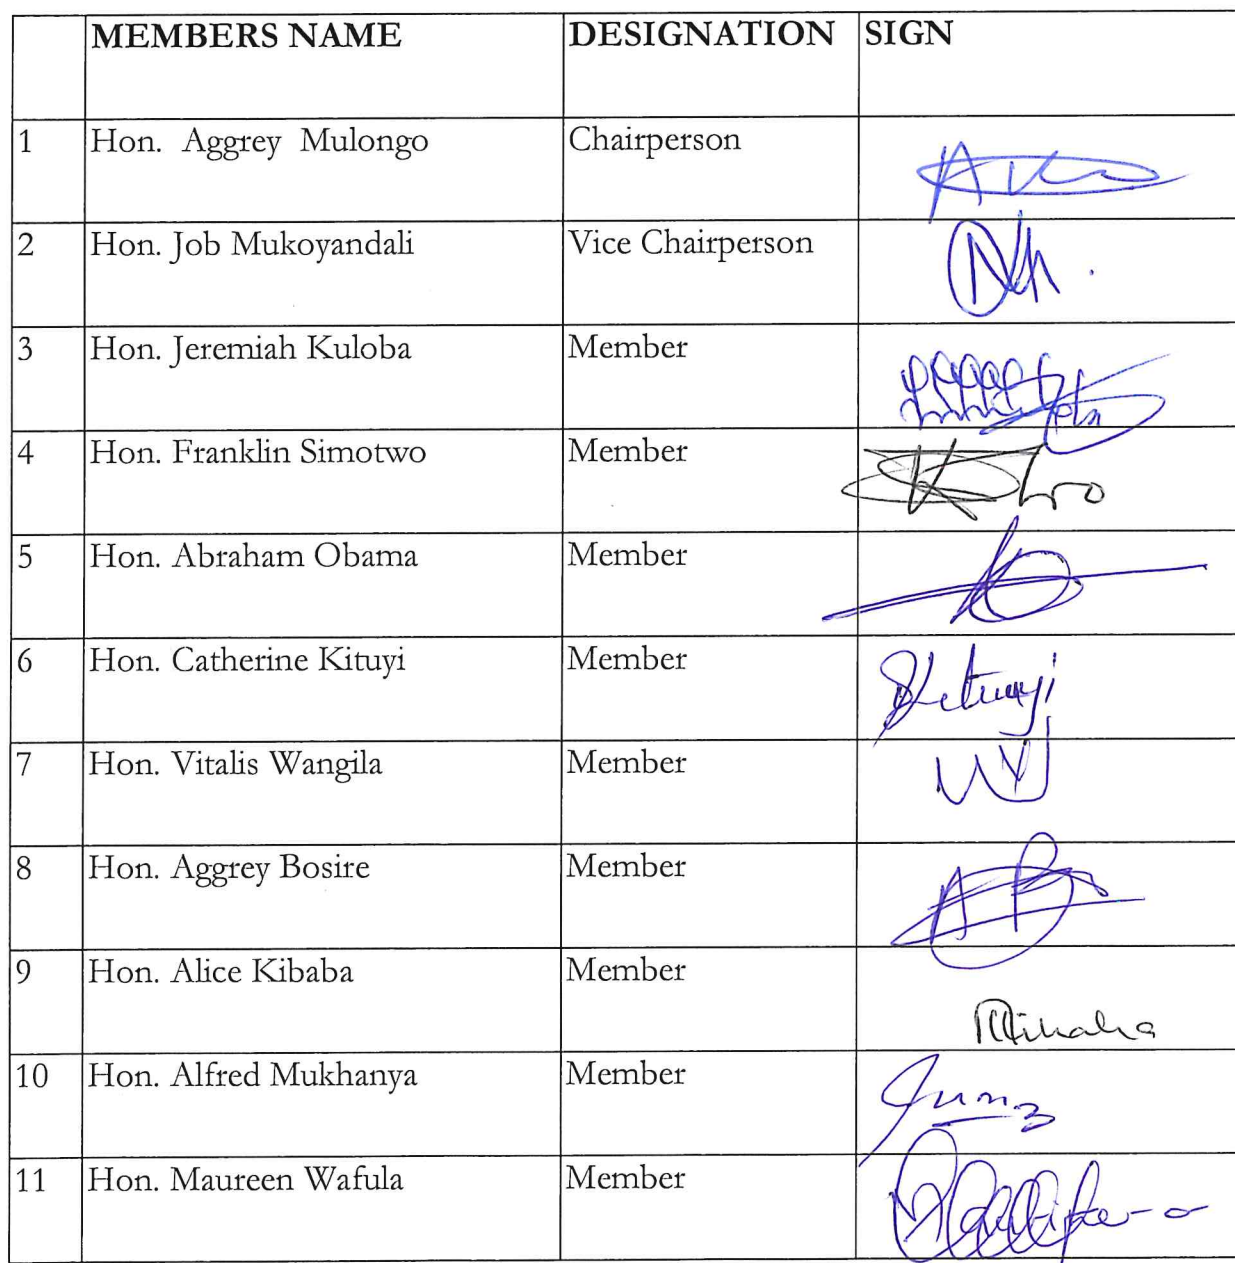 MEMBERS NAME DESIGNATION SIGN
1 Hon. Aggrey Mulongo Chairperson
2 Hon. Job Mukoyandali Vice Chairperson
3 Hon. Jeremiah Kuloba Member
4 Hon. Franklin Simotwo Member
5 Hon. Abraham Obama Member
6 Hon. Catherine Kituyi Member
7 Hon. Vitalis Wangila Member
8 Hon. Aggrey Bosire Member
9 Hon. Alice Kibaba Member
10 Hon. Alfred Mukhanya Member
11 Hon. Maureen Wafula Member